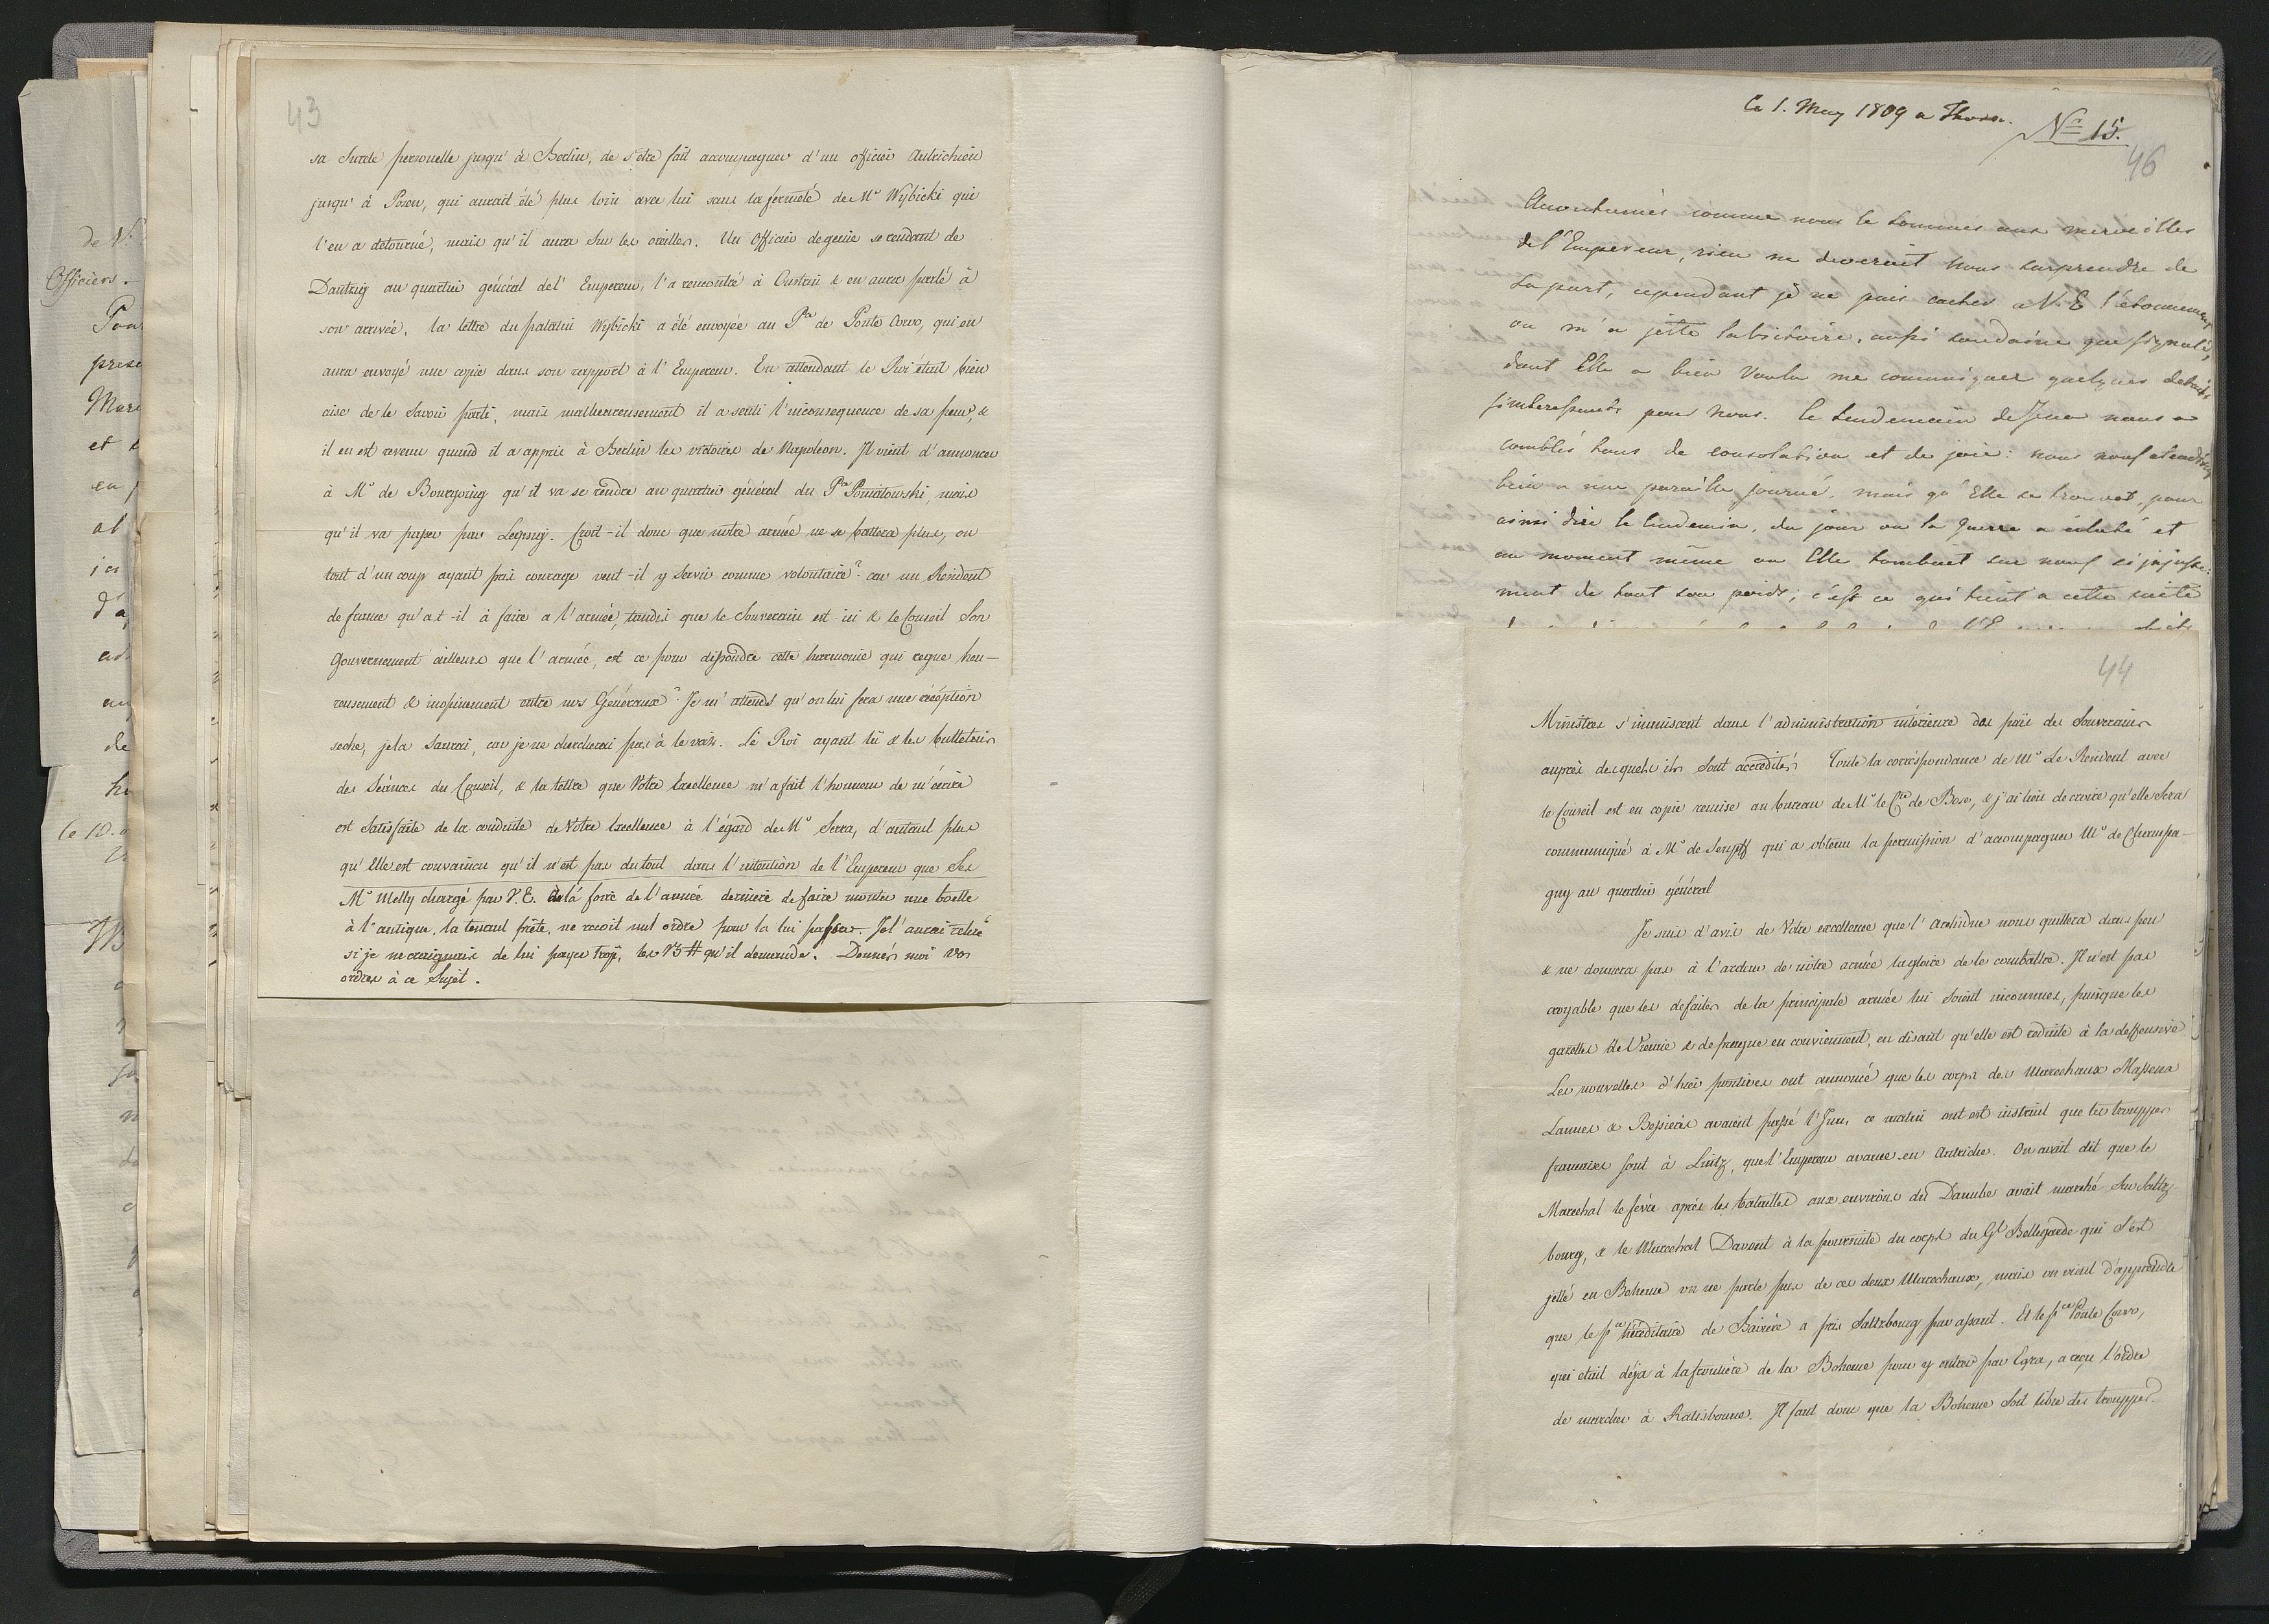 43
sa sureté personelle jusqu'à Berlin, de s'être fait accompagner d'un officier Autrichien
jusqu'à Posen, qui aurait été plus loin avec lui sans la fermeté de Mr Wybicki qui
l'en a detourné, mais qu'il aura sur les oreilles. Un Officier de genie se rendant de
Dantzig au quartier général de l'Empereur, l'a rencontré à Custrin & en aura parlé à
son arrivée, la lettre du palatin Wybicki a été envoyée au Pce de Ponte Corvo, qui en
aura envoyé une copie dans son rapport à l'Empereur. En attendant le Roi était bien
aise de le savoir parti, mais malheureusement il a senti l'inconsequence de sa peur, &
il en est revenu quand il a appris à Berlin les victoires de Napoleon. Il vient d'annoncer
à Mr de Bourgoing qu'il va se rendre au quartier général du Pce Poniatowski, mais
qu'il va passer par Leipsig. Croit-il donc que notre armée ne se battera plus, ou
tout d'un coup ayant pris courage veut-il y servir comme volontaire? car un Resident
de france qu'a t-il à faire a l'armée, tandis que le Souverain est ici & le Conseil Son
Gouvernement ailleurs que l'armée, est ce pour dissoudre cette harmonie qui regne heu-
reusement & entre nos Généraux? Je m'attends qu'on lui fera une réception
seche, je la saurai, car je ne chercherai pas à le voir. Le Roi ayant lû & les bulletins
des Séances du Conseil, & la lettre que Votre Excellence m'a fait l'honneur de m'écrire
est satisfaite de la conduite de Votre Excellence à l'égard de Mr Serra, d'autant plus
qu'Elle est convaincu qu'il n'est pas du tout dans l'intention de l'Empereur que Ses
Mr Melly chargé par V.E. à la foire de l'année derniere de faire monter une boelle
à l'antique, la tenant prête, ne recoit nul ordre pour la lui passer. Je l'aurai retiré
si je ne craignais de lui payer trop, les 13 # qu'il demande. Donnés moi vos
ordres à ce Sujet.
Ce 1. May 1809 a Thorn.
No 15.
46
Accoutumés comme nous le sommes aux merveilles
de l'Empereur, rien ne deveroit nous surprendre de
sa part, cependant je ne puis cacher a V.E l'étonnement
ou m'a jette la victoire, aussi soudaine que signalé,
dont Elle a bien voulu me communiquer quelques details
s'interessants pour nous. le lendemain de Jena nous a
comblés tous de consolation et de joie: nous nous attendions
bien a une pareille journé, mais qu'Elle se trouvat, pour
ainsi dire le lendemin, du jour ou la guerre a éclaté et
au moment même ou Elle tombait sur nous si injuste:
ment de tout son poids, c'est ce qui tient a cette suite
44
Ministres s'immiscent dans l'administration intérieure des païs des Souverains
auprès desquels ils sont accredités. Toute la correspondance de Mr Le Resident avec
le Conseil est en copie remise au bureau de Mr le Cte de Bose, & j'ai lieu de croire qu'elle sera
communiqué à Mr de Senfft qui a obtenu la permission d'accompagner Mr de Champa-
gny au quartier général
Je suis d'avis de Votre excellence que l'Archiduc nous quittera dans peu
& ne donnera pas à l'ardeur de nôtre armée la gloire de le combattre. Il n'est pas
croyable que les defaites de la principale armée lui soient inconnues, puisque les
gazettes de Vienne & de prague en conviennent, en disant qu'elle est reduite à la deffensive
Les nouvelles d'hier portives ont annoncé que les corps des Marechaux Massena
Lannes & Bessières avaient passé l'Inn, ce matin ont est instruit que les trouppes
francaises sont à Lintz, que l'Empereur avance en Autriche. On avait dit que le
Marechal le fèvre après les batailles aux environs du Danube avait marché sur Saltz-
bourg, & le Marechal Davout à la poursuite du corps du Gl Bellegarde qui s'est
jetté en Boheme on ne parle pas de ces deux Marechaux, mais on vient d'apprendre
que le Pce héreditaire de Bavière a pris Saltzbourg par assaut. Et le Pce Ponte Corvo,
qui etait déja à la frontière de la Boheme pour y entrer par Egra, a reçu l'ordre
de marcher à Ratisbonne. Il faut donc que la Boheme soit libre des trouppes